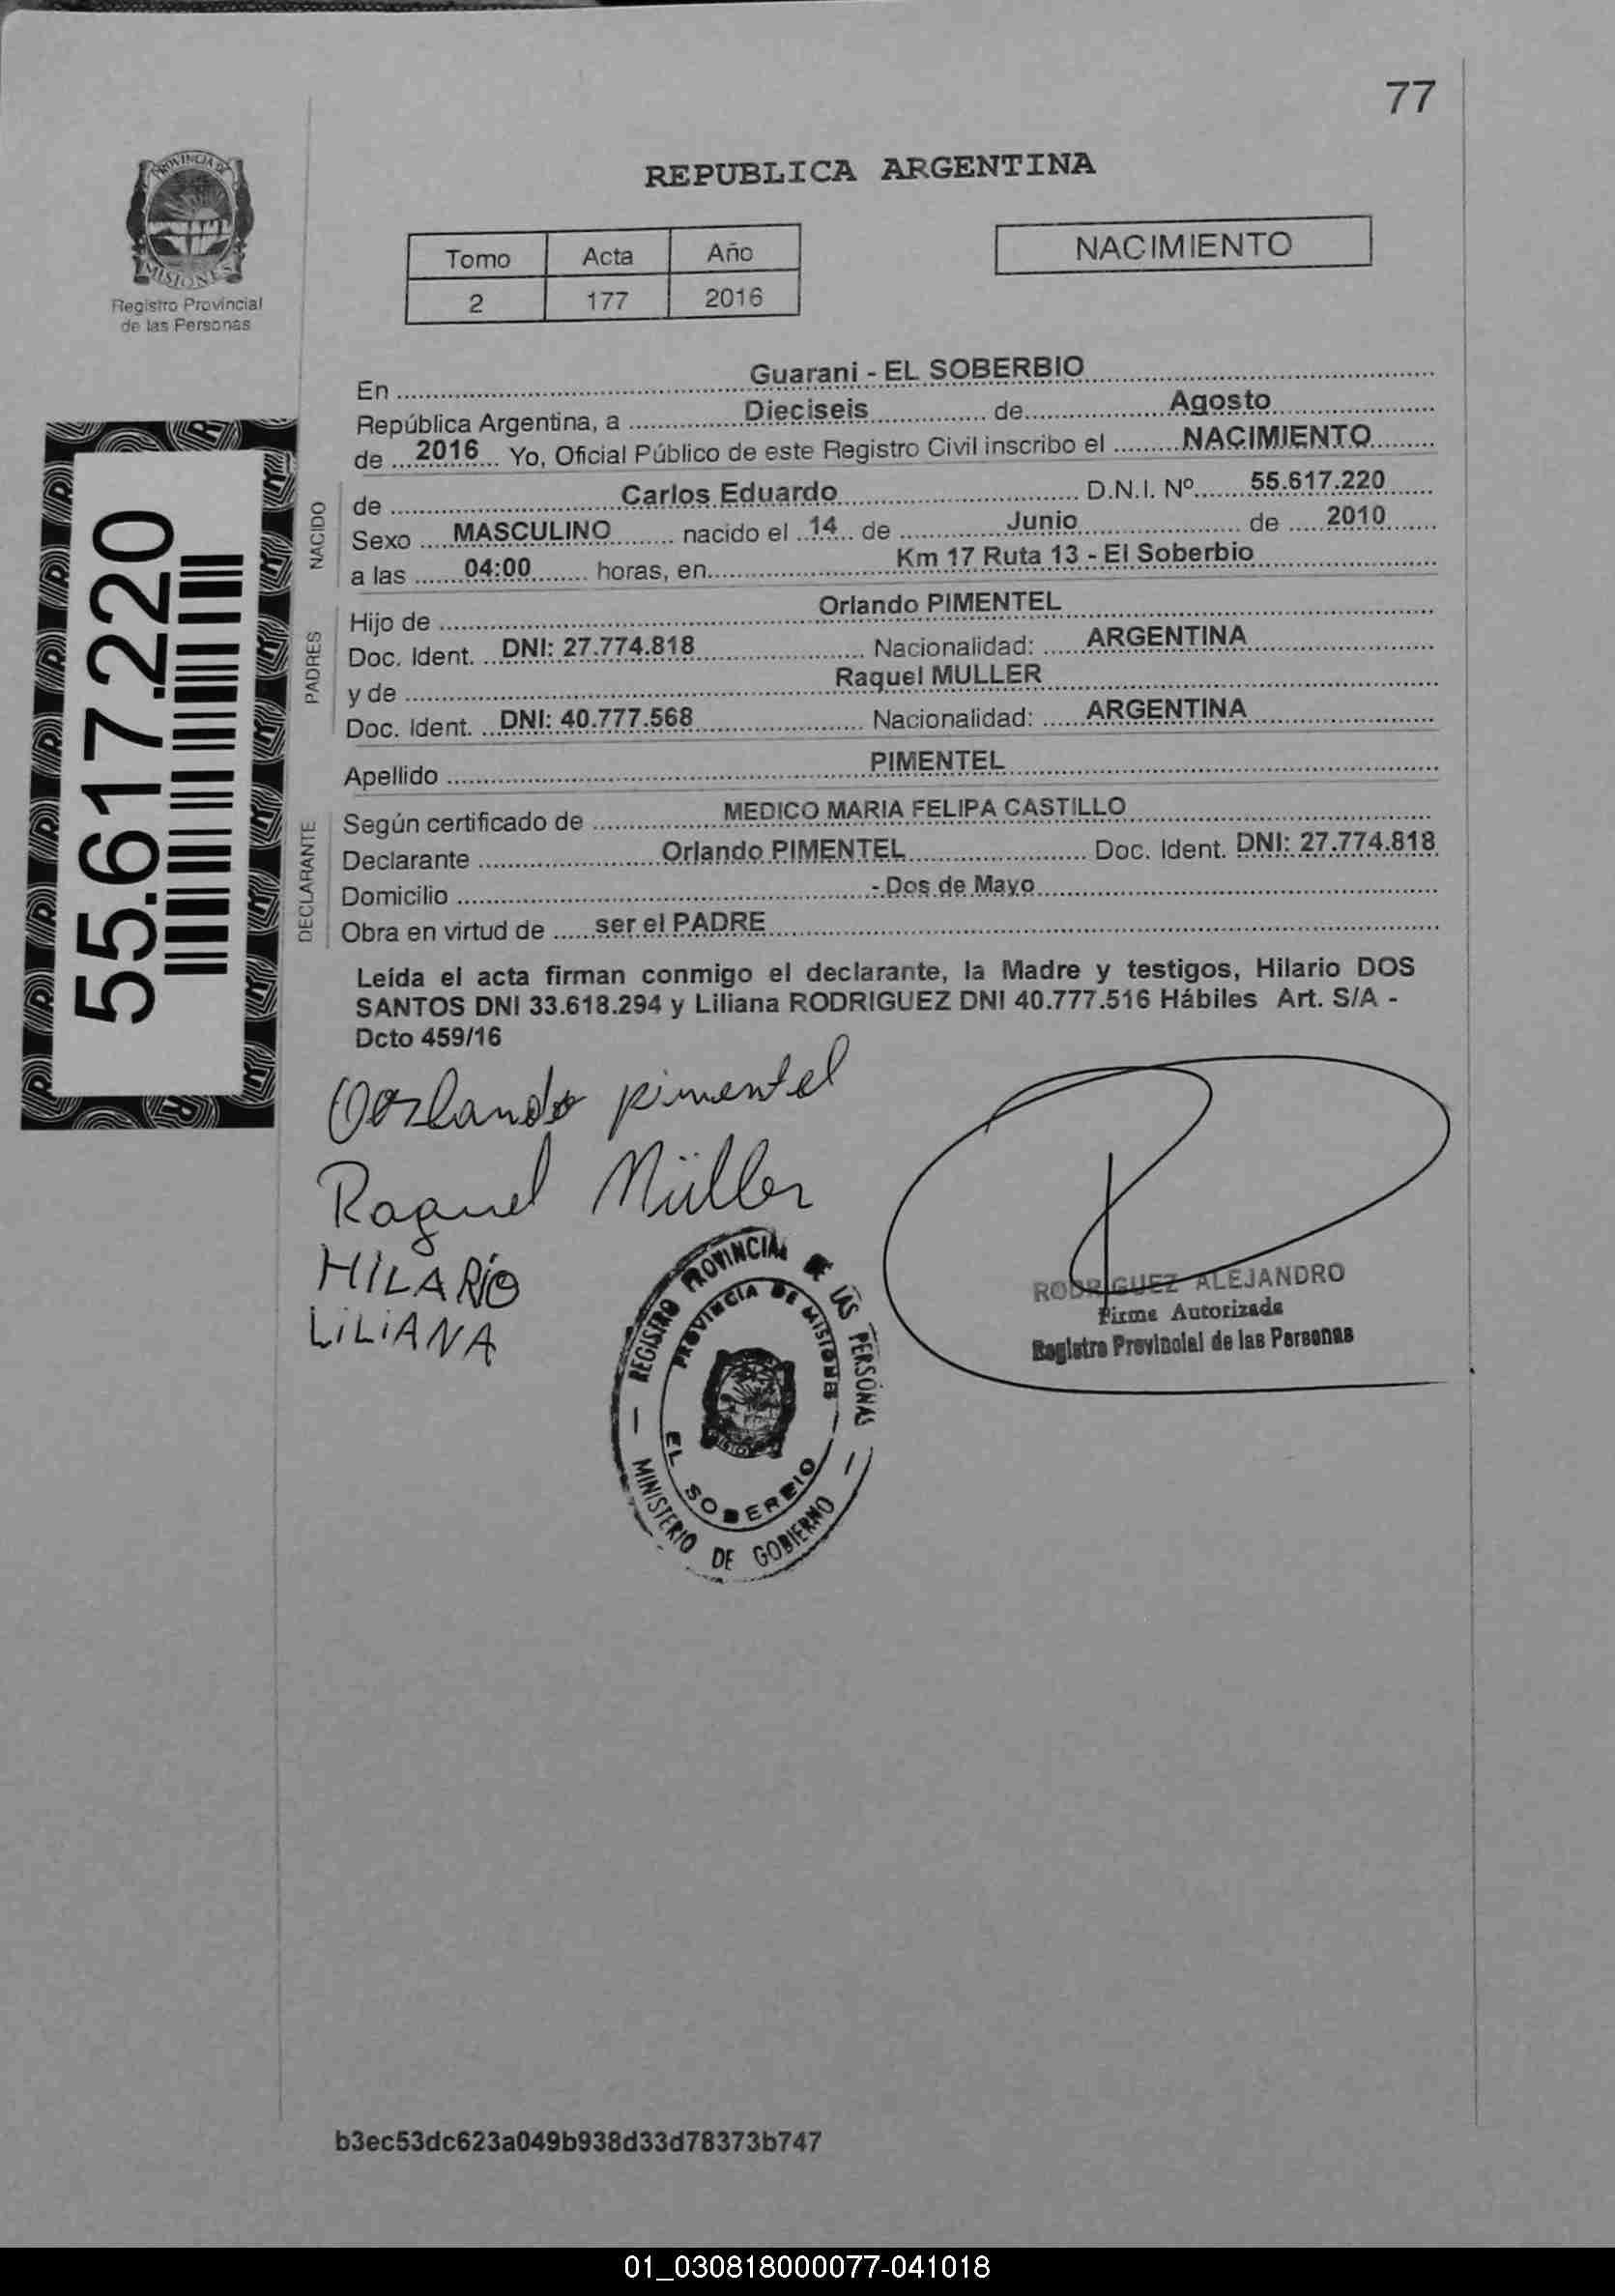 77
PROVINCIA DE
MISIONES
Registro Provincial
de las Personas
REPUBLICA ARGENTINA
Tomo Acta Año
2 177 2016
NACIMIENTO
55.617.220
En Guarani - EL SOBERBIO
República Argentina, a Dieciseis de Agosto
de 2016 Yo, Oficial Público de este Registro Civil inscribo el NACIMIENTO
NACIDO
de Carlos Eduardo D.N.I. Nº 55.617.220
Sexo MASCULINO nacido el 14 de Junio de 2010
a las 04:00 horas, en Km 17 Ruta 13 - El Soberbio
PADRES
Hijo de Orlando PIMENTEL
Doc. Ident. DNI: 27.774.818 Nacionalidad: ARGENTINA
y de Raquel MULLER
Doc. Ident. DNI: 40.777.568 Nacionalidad: ARGENTINA
Apellido PIMENTEL
DECLARANTE
Según certificado de MEDICO MARIA FELIPA CASTILLO
Declarante Orlando PIMENTEL Doc. Ident. DNI: 27.774.818
Domicilio - Dos de Mayo
Obra en virtud de ser el PADRE
Leída el acta firman conmigo el declarante, la Madre y testigos, Hilario DOS
SANTOS DNI 33.618.294 y Liliana RODRIGUEZ DNI 40.777.516 Hábiles Art. S/A -
Dcto 459/16
Orlando pimentel
Raquel Müller
HILARIO
LILIANA
REGISTRO PROVINCIAL DE LAS PERSONAS
PROVINCIA DE MISIONES
EL SOBERBIO
MINISTERIO DE GOBIERNO
RODRIGUEZ ALEJANDRO
Firma Autorizada
Registro Provincial de las Personas
b3ec53dc623a049b938d33d78373b747
01_030818000077-041018